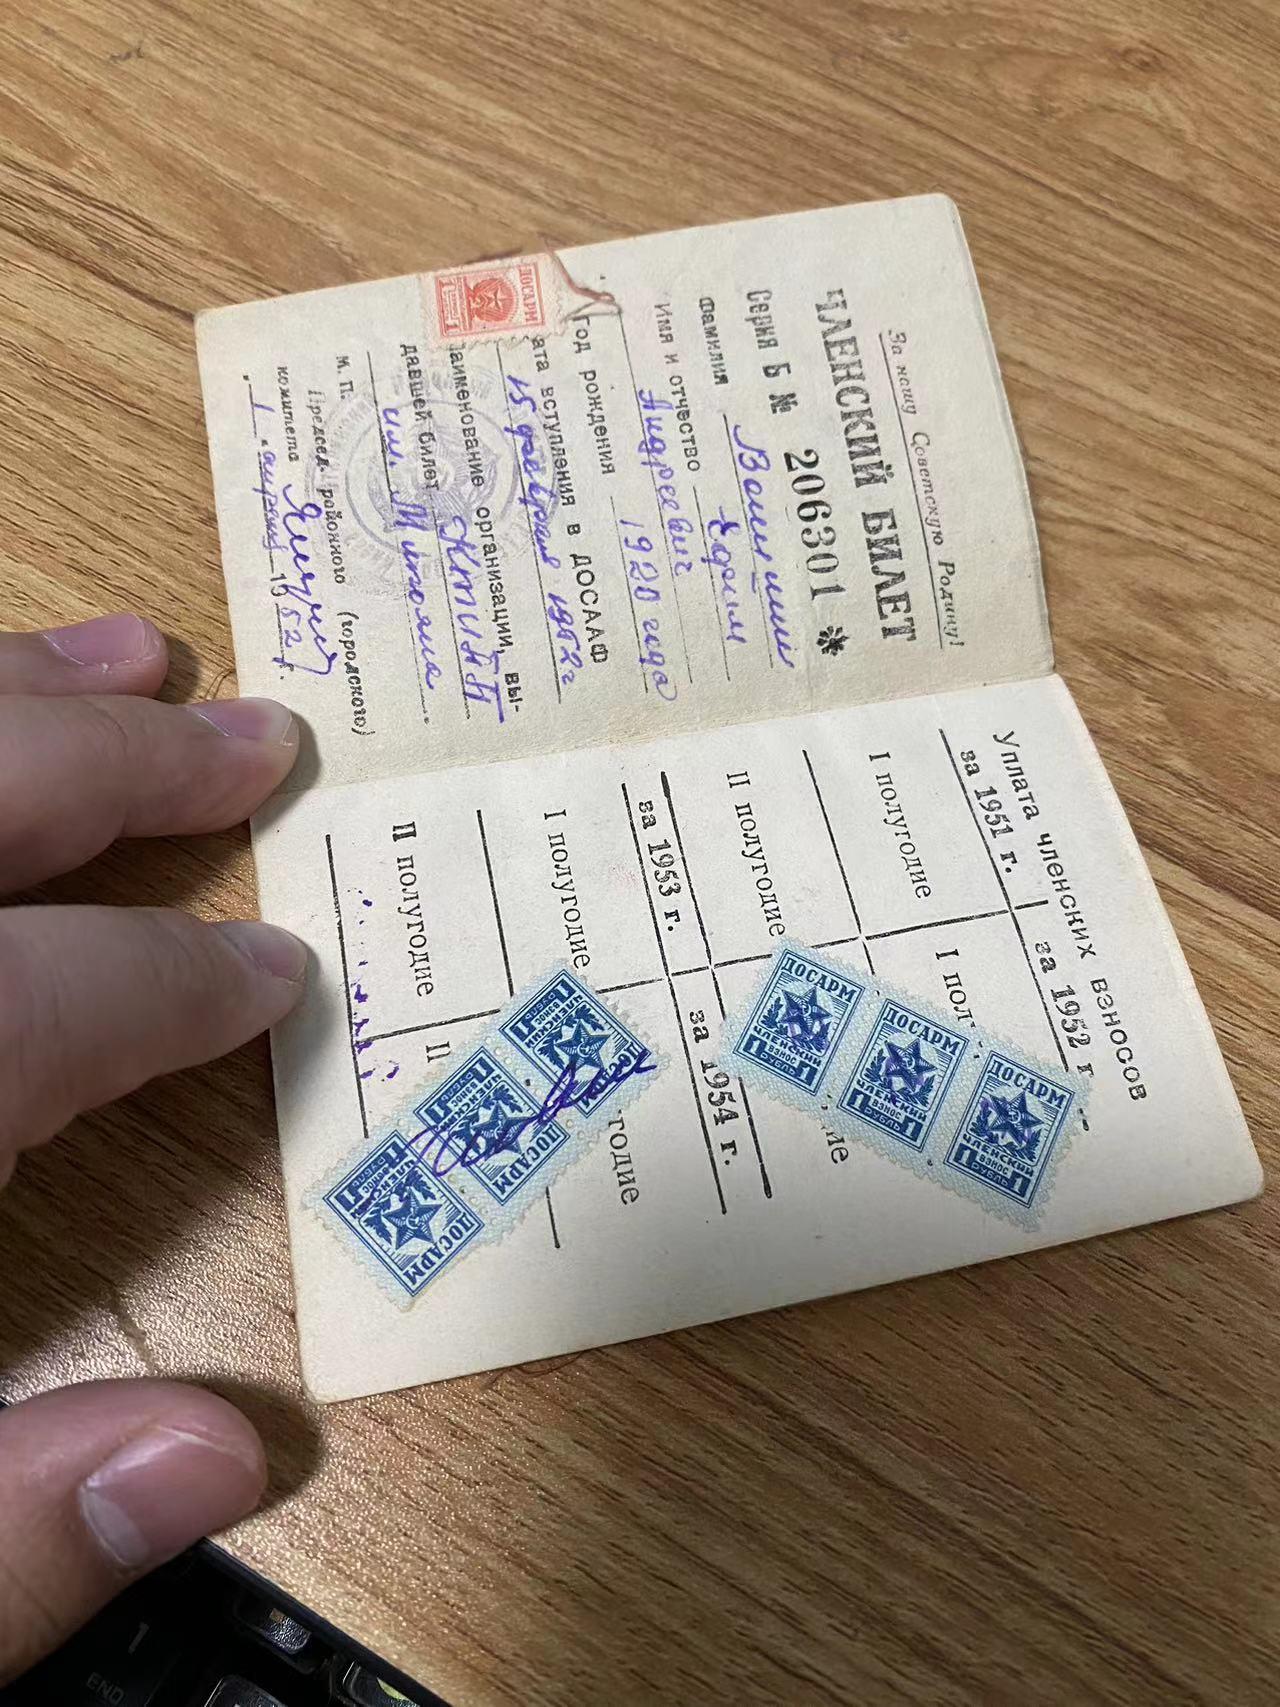 За нашу Советскую Родину!
ЧЛЕНСКИЙ БИЛЕТ
Серия Б № 206301 *
Фамилия
Имя и отчество Ефим
Андреевич
Год рождения 1920 года
ата вступления в ДОСААФ
15 февраля 1952 г
аименование организации, вы-
давшей билет
им. Микояна
М. П.
Председ. районного (городского)
комитета
„1“ апреля 1952 г.
ДОСАРМ
1 1
Уплата членских взносов
за 1951 г.
за 1952 г
I полугодие
I пол
II полугодие
ие
за 1953 г.
за 1954 г.
I полугодие
годие
II полугодие
II
ДОСАРМ
ЧЛЕНСКИЙ
ВЗНОС
1 РУБЛЬ 1
ДОСАРМ
ЧЛЕНСКИЙ
ВЗНОС
1 РУБЛЬ 1
ДОСАРМ
ЧЛЕНСКИЙ
ВЗНОС
1 РУБЛЬ 1
ДОСАРМ
ЧЛЕНСКИЙ
ВЗНОС
1 РУБЛЬ 1
ДОСАРМ
ЧЛЕНСКИЙ
ВЗНОС
1 РУБЛЬ 1
ДОСАРМ
ЧЛЕНСКИЙ
ВЗНОС
1 РУБЛЬ 1
1
END